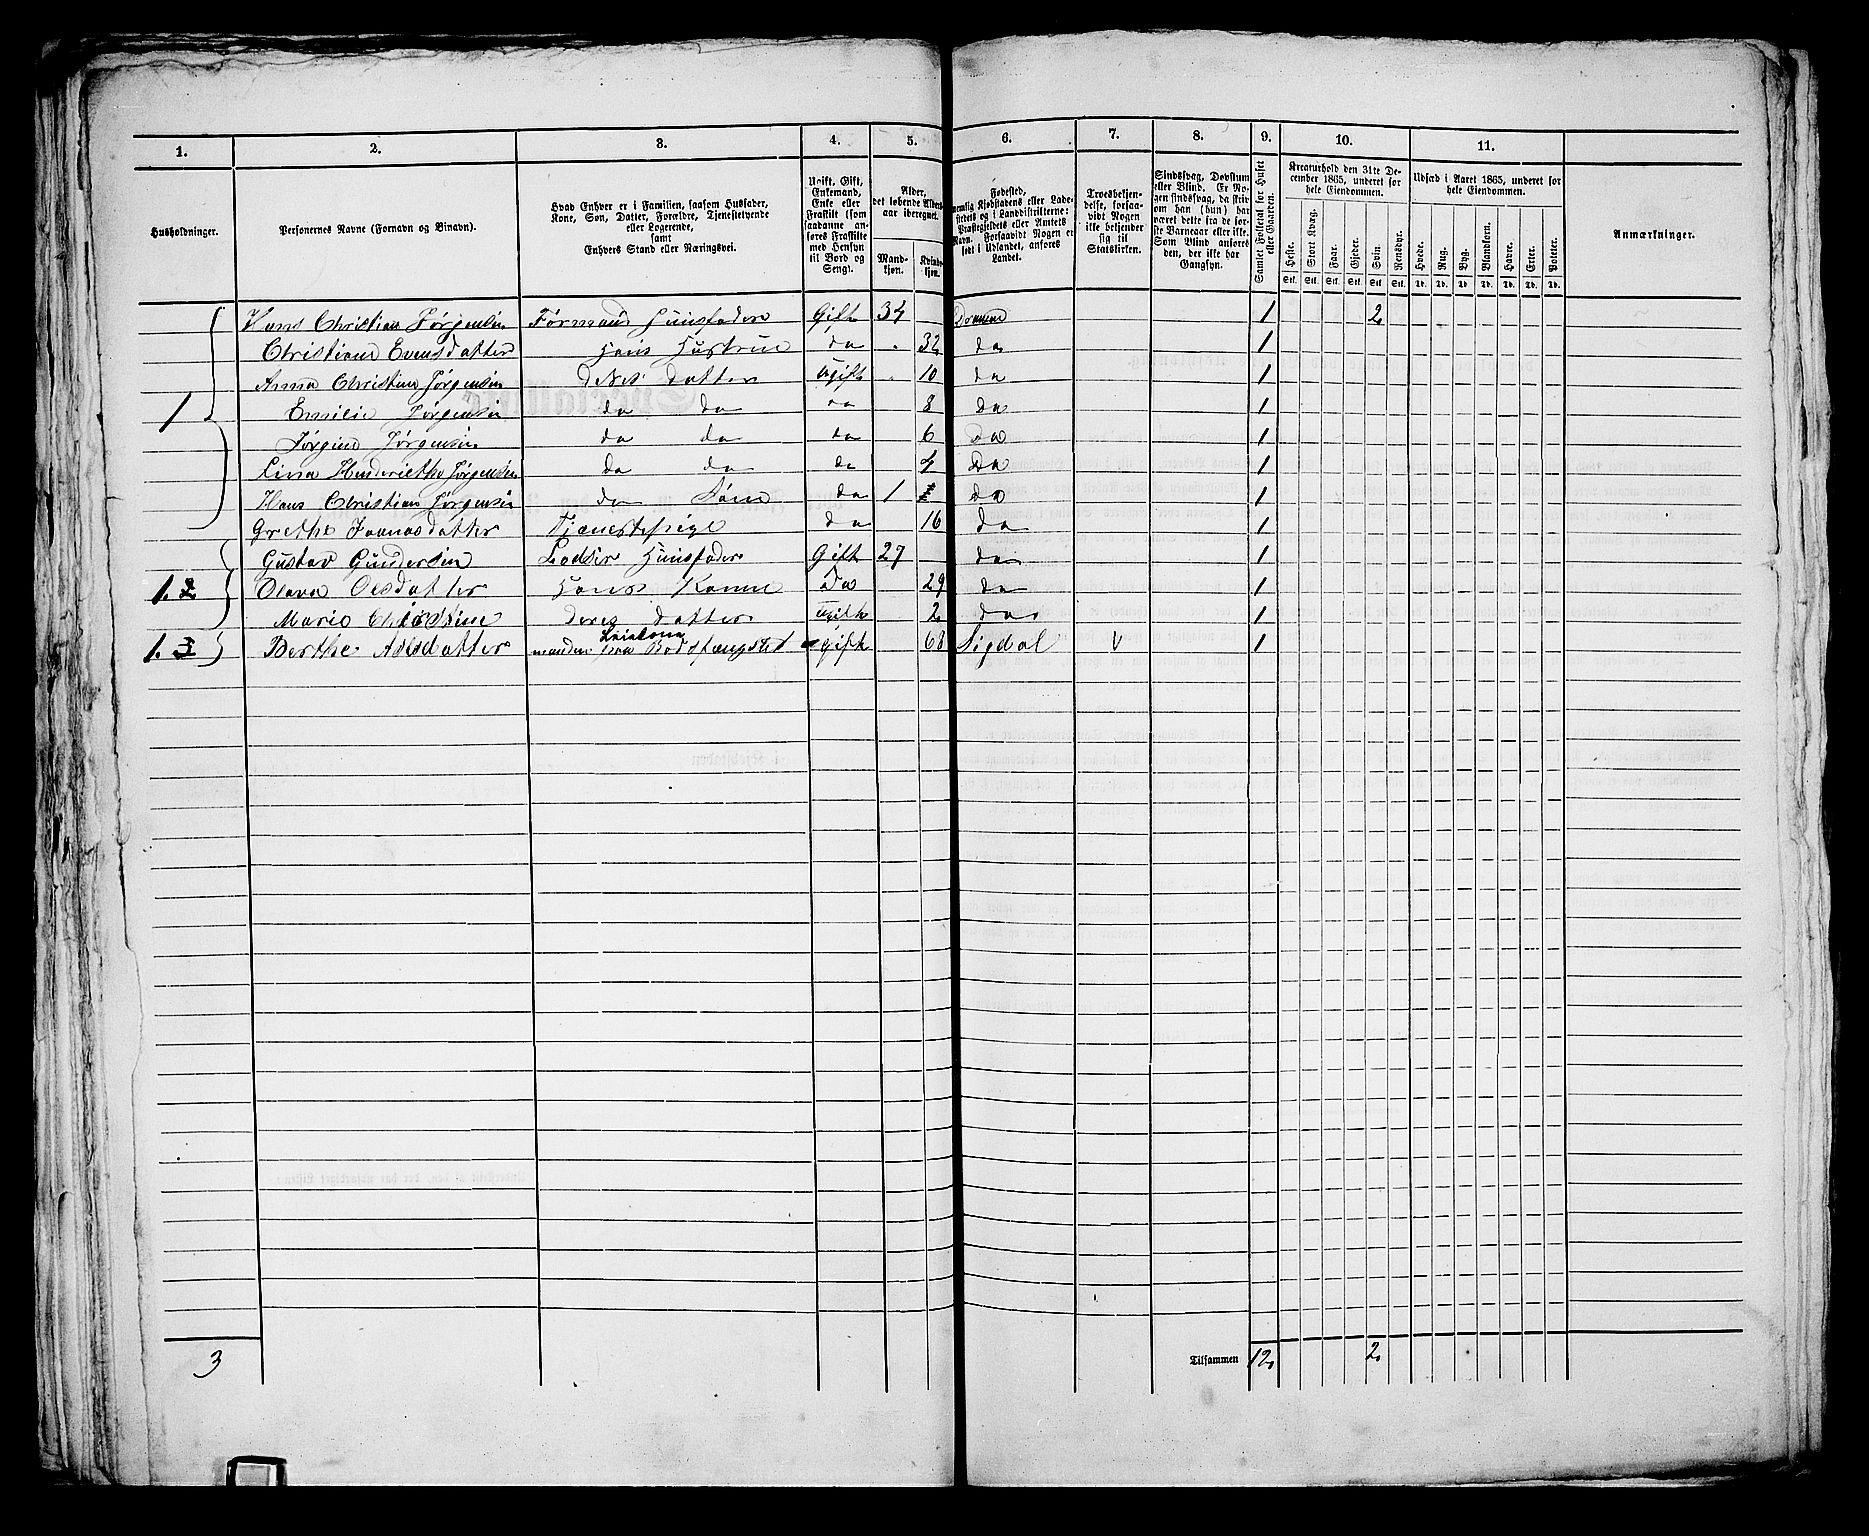 1. 2. 3. 4. 5. 6. 7. 8. 9. 10. 11.
Husholdninger.
Personernes Navne (Fornavn og Binavn).
Hvad Enhver er i Familien, saasom Husfader,
Kone, Søn, Datter, Forældre, Tjenestetyende
eller Logerende,
samt
Enhvers Stand eller Næringsvei.
Ugift, Gift,
Enkemand,
Enke eller
Fraskilt (som
saadanne an-
føres Fraskilte
med Hensyn
til Bord og
Seng).
Alder,
det løbende Alders-
aar iberegnet.
Mand-
kjøn.
Kvinde-
kjøn.
Fødested,
nemlig Kjøbstadens eller Lade-
stedets og i Landdistrikterne:
Præstegjeldets eller Amtets
Navn. Forsaavidt Nogen er
født i Udlandet, anføres
Landet.
Troesbekjen-
delse, forsaa-
vidt Nogen
ikke bekjender
sig til
Statskirken.
Sindssvag, Døvstum
eller Blind. Er No-
gen sindssvag, da skriv
om han (hun) har
været dette fra de før-
ste Barneaar eller ikke.
Som Blind anføres
den, der ikke har
Gangsyn.
Samlet Folketal for Huset
eller Gaarden.
Kreaturhold den 31te De-
cember 1865, underet for
hele Eiendommen.
Heste. Stort Kvæg. Faar. Gjeder. Svin. Rensdyr.
Stk. Stk. Stk. Stk. Stk. Stk.
Udsæd i Aaret 1865, underet for
hele Eiendommen.
Hvede. Rug. Byg. Blandkorn. Havre. Erter. Poteter.
Td. Td. Td. Td. Td. Td. Td.
Anmærkninger.
Hans Christian Jørgensen Formand Huusfader Gift 34 Dramme 1 2
Christiane Evensdatter Hans Hustrue do 32 do 1
Anna Christine Jørgensen deres datter Ugift 10 do 1
1 Emilie Jørgensen do do do 8 do 1
Jørgine Jørgensen do do do 6 do 1
Lina Henderiethe Jørgensen do do do 4 do 1
Hans Christian Jørgensen do Søn do 1 do 1
Grethe Joenasdatter Tjenestepige do 16 do 1
Gustav Gundersen Lodser Huusfader Gift 27 do 1
1. 2 Olava Olsdatter Hans Kone Do 29 do 1
Marie Christine deres datter Ugift 2 do 1
1. 3 Berthe Aslsdatter manden paa Bodsfængslet gift 68 Sigdal V 1
3 Tilsammen 12 2